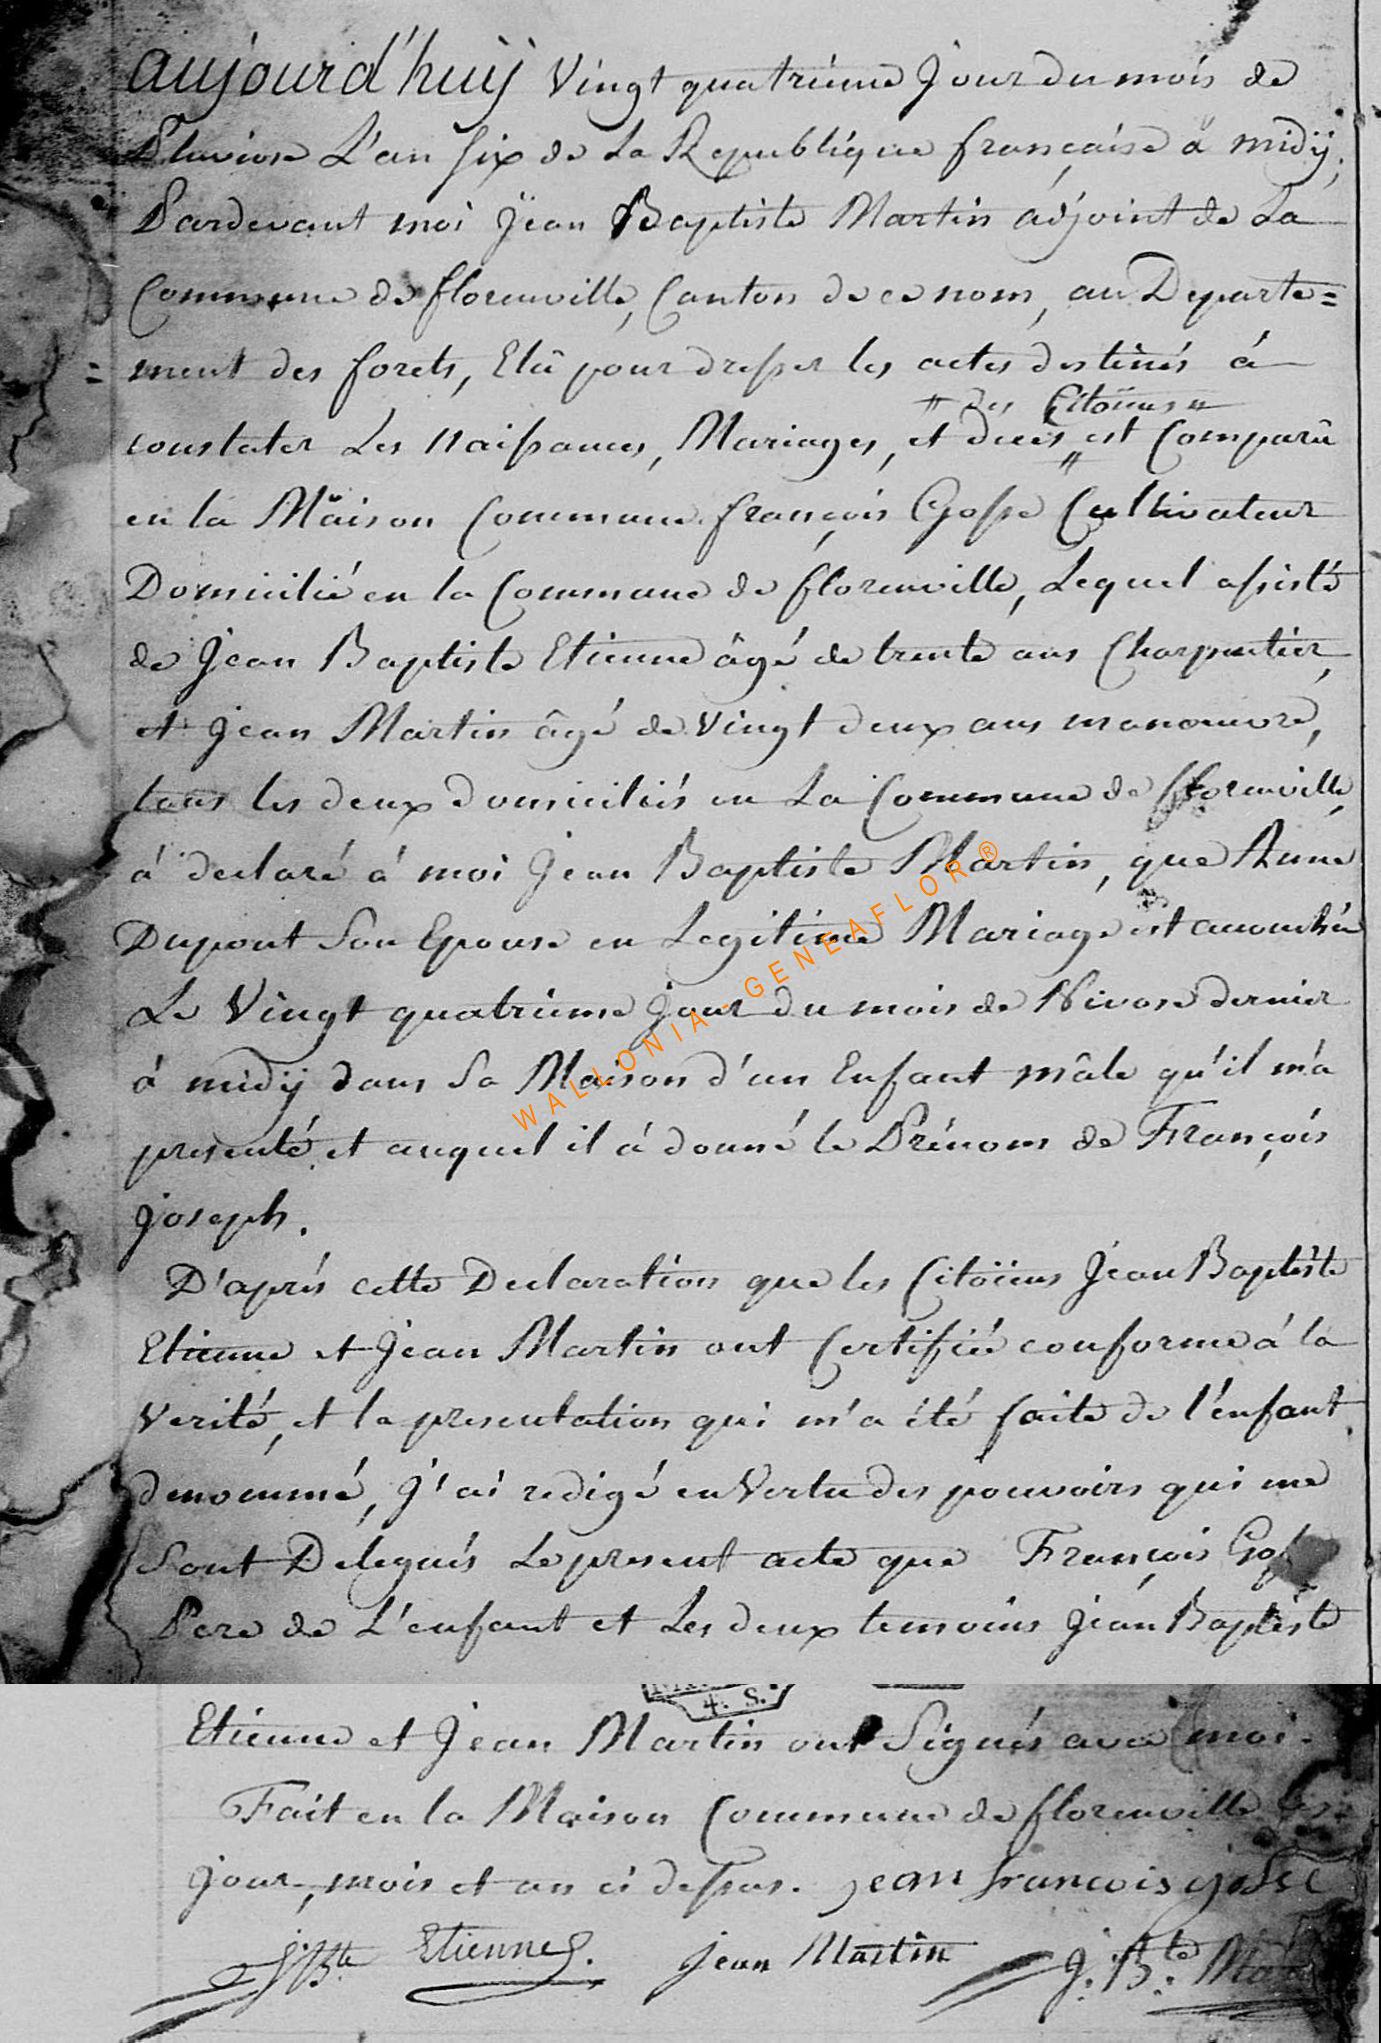 aujourd'huÿ Vingt quatrieme Jour du mois de
Pluviose L'an six de La Republique française à midÿ,
Pardevant moi Jean Baptiste Martin adjoint de La
Commune de florenville, Canton de ce nom, au Departe=
=ment des forets, Elû pour dresser les actes destinés á
" des Citoïens "
constater Les Naissances, Mariages, et deces " est Comparû
en la Maison Commune françois Gosse Cultivateur
Domicilié en la Commune de florenville, Lequel assisté
de Jean Baptiste Etienne âgé de trente ans Charpentier,
et Jean Martin âgé de Vingt deux ans manoeuvre,
tous les deux domiciliés en La Commune de florenville
á declaré á moi Jean Baptiste Martin, que Anne
Dupont Son Epouse en Legitime Mariage est accouchée
Le Vingt quatrieme Jour du mois de Nivose dernier
á midÿ dans Sa Maison d'un Enfant mâle qu'il m'a
presenté et auquel il á donné le Prénom de François
Joseph.
D'aprés cette Declaration que les Citoïens Jean Baptiste
Etienne et Jean Martin ont Certifiée conforme á la
Verité, et la presentation qui m'a été faite de l'enfant
denommé, J'ai redigé en Vertu des pouvoirs qui me
Sont Delegués Le present acte que François
Pere de L'enfant et Les deux temoins Jean Baptiste
4. S.
Etienne et Jean Martin ont Signés avec moi.
Fait en la Maison Commune de florenville
Jour, mois et an ci dessus. jean francois gosse
J Bte Etienne. jean Martin J. Bte.
WALLONIA - GENEAFLOR®